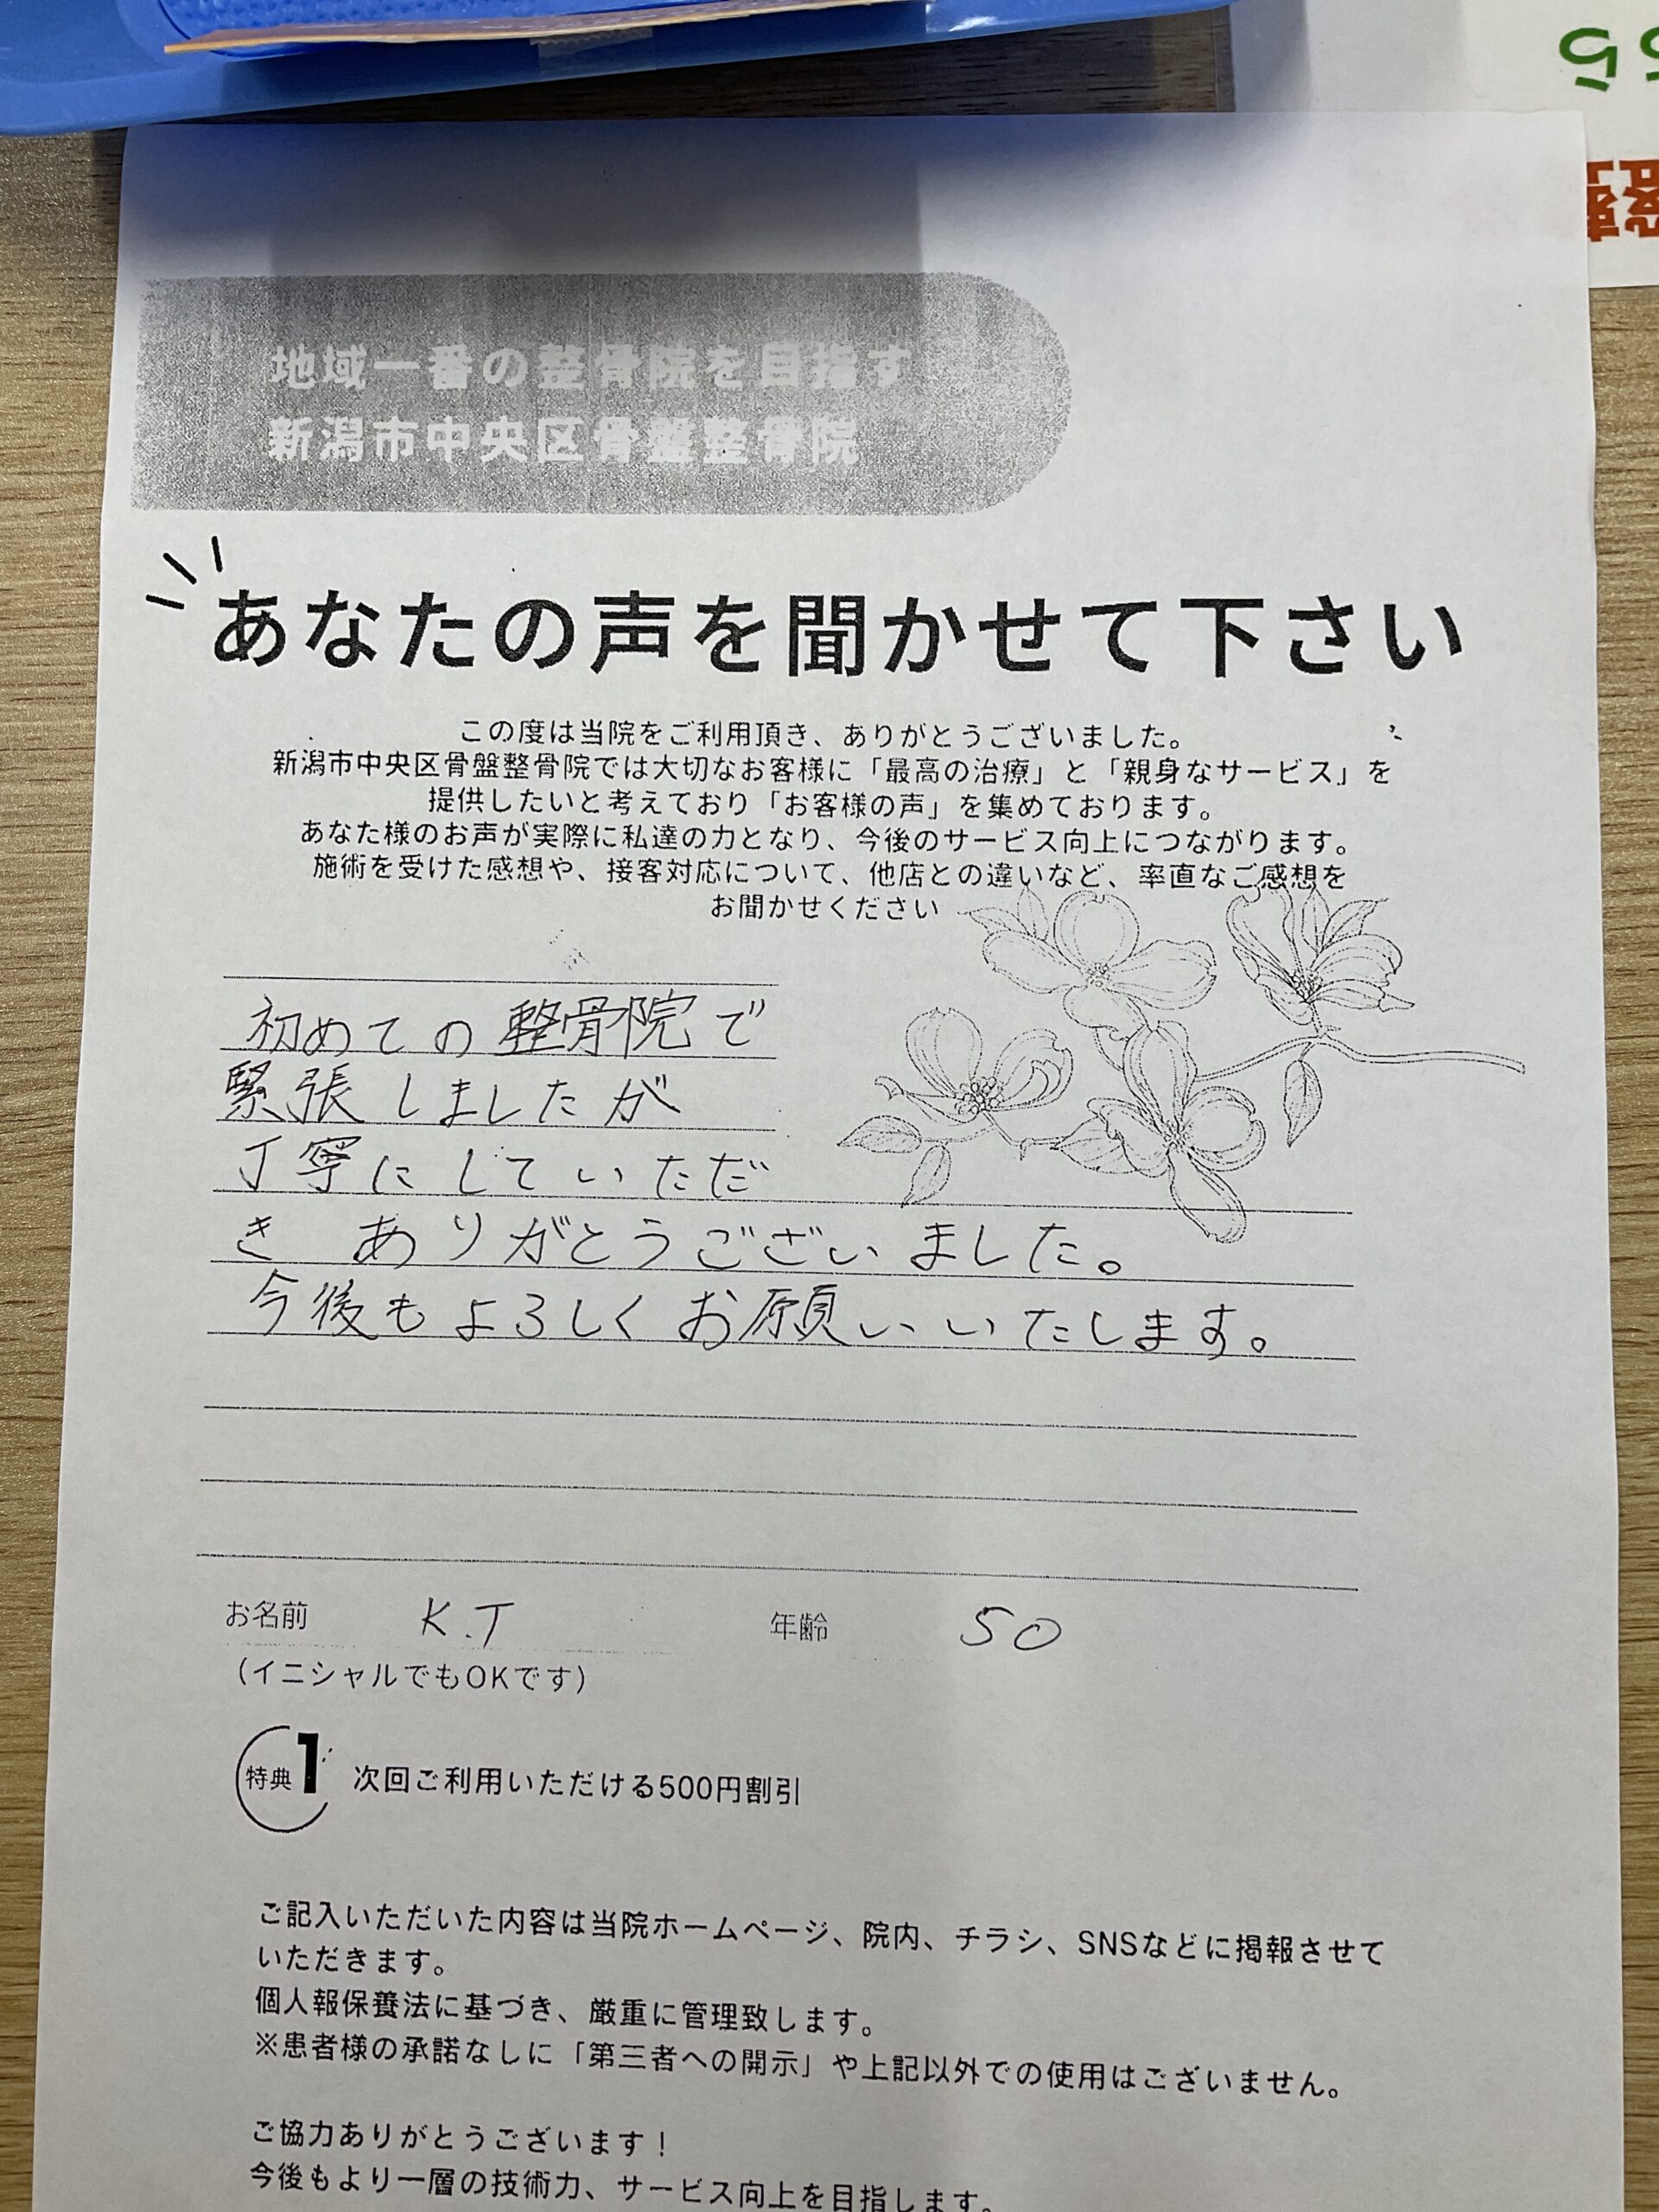 地域一番の整骨院を目指す
新潟市中央区骨盤整骨院
あなたの声を聞かせて下さい
この度は当院をご利用頂き、ありがとうございました。
新潟市中央区骨盤整骨院では大切なお客様に「最高の治療」と「親身なサービス」を
提供したいと考えており「お客様の声」を集めております。
あなた様のお声が実際に私達の力となり、今後のサービス向上につながります。
施術を受けた感想や、接客対応について、他店との違いなど、率直なご感想を
お聞かせください
初めての整骨院で
緊張しましたが
丁寧にしていただ
き ありがとうございました。
今後もよろしくお願いいたします。
お名前 K.T 年齢 50
(イニシャルでもOKです)
特典1 次回ご利用いただける500円割引
ご記入いただいた内容は当院ホームページ、院内、チラシ、SNSなどに掲報させて
いただきます。
個人報保養法に基づき、厳重に管理致します。
※患者様の承諾なしに「第三者への開示」や上記以外での使用はございません。
ご協力ありがとうございます！
今後もより一層の技術力、サービス向上を目指します。